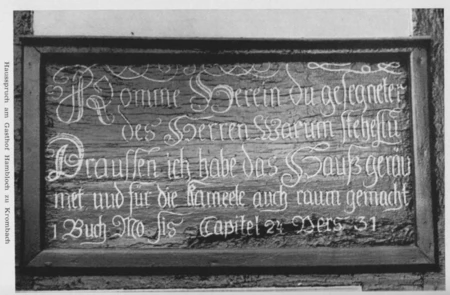 Komme Herein du gesegneter
des Herren Warum stehestu
Draussen ich habe das Hauß gerau
met und für die Kameele auch raum gemacht
1 Buch Mo sis Capitel 24 Vers 31
Hausspruch am Gasthof Hambloch zu Krombach